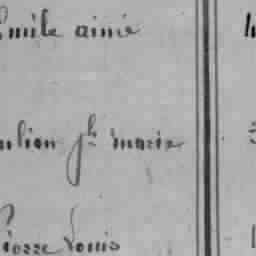 Emile aimé
ulien jh marie
Pierre Louis